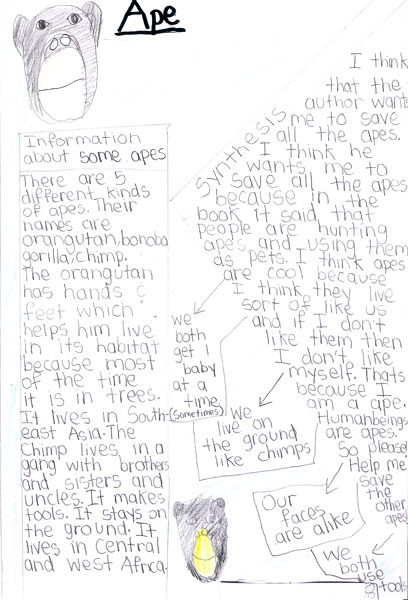 Ape
Information
about some apes
There are 5
different kinds
of apes. Their
names are
orangutan, bonobo
gorilla, chimp.
The orangutan
has hands &
feet which
helps him live
in its habitat
because most
of the time
it is in trees.
It lives in South-
east Asia. The
Chimp lives in a
gang with brothers
and sisters and
uncles. It makes
tools. It stays on
the ground. It
lives in Central
and West Africa.
Synthesis
I think
that the
author wants
me to save
all the apes.
I think he
wants me to
save all the apes
because in the
book it said that
people are hunting
apes and using them
as pets. I think apes
are cool because
I think they live
sort of like us
and if I don't
like them then
I don't like
myself. Thats
because I
am a ape.
Humanbeings
are apes.
So please!
Help me
save
the
other
apes!
we
both
get 1
baby
at a
time
(sometimes)
We
live on
the ground
like chimps
Our
faces
are alike
We
both
use
tools